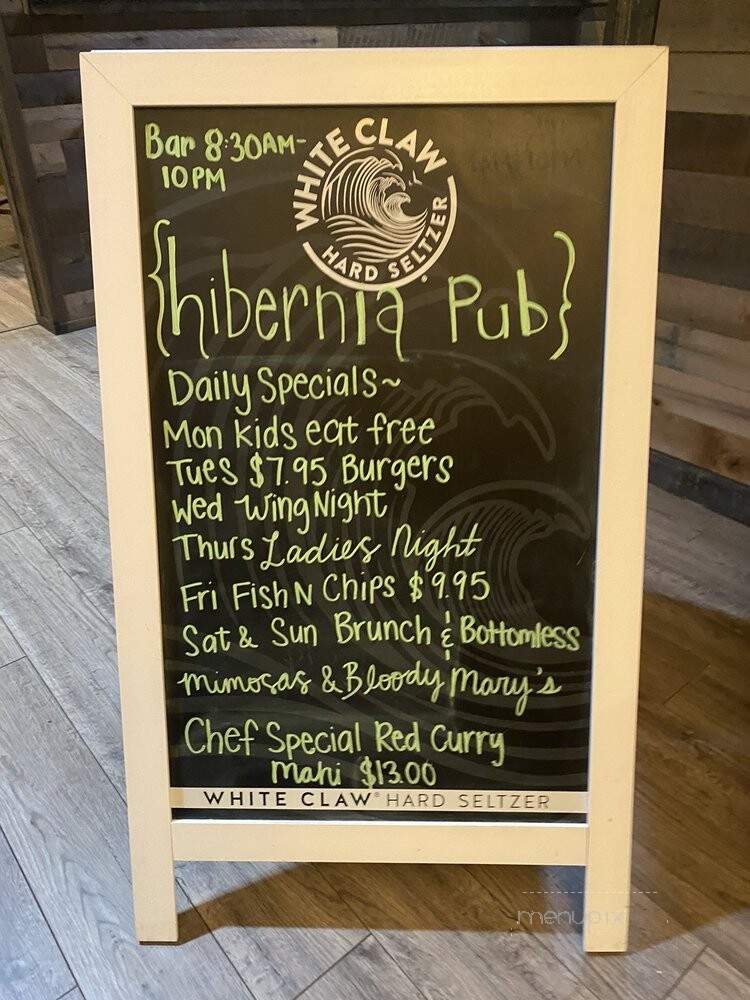 Bar 8:30AM-
10PM
WHITE CLAW
HARD SELTZER
{hibernia Pub}
Daily Specials~
Mon kids eat free
Tues $7.95 Burgers
Wed Wing Night
Thurs Ladies Night
Fri Fish N Chips $9.95
Sat & Sun Brunch & Bottomless
Mimosas & Bloody Mary's
Chef Special Red Curry
Mahi $13.00
WHITE CLAW® HARD SELTZER
menupix